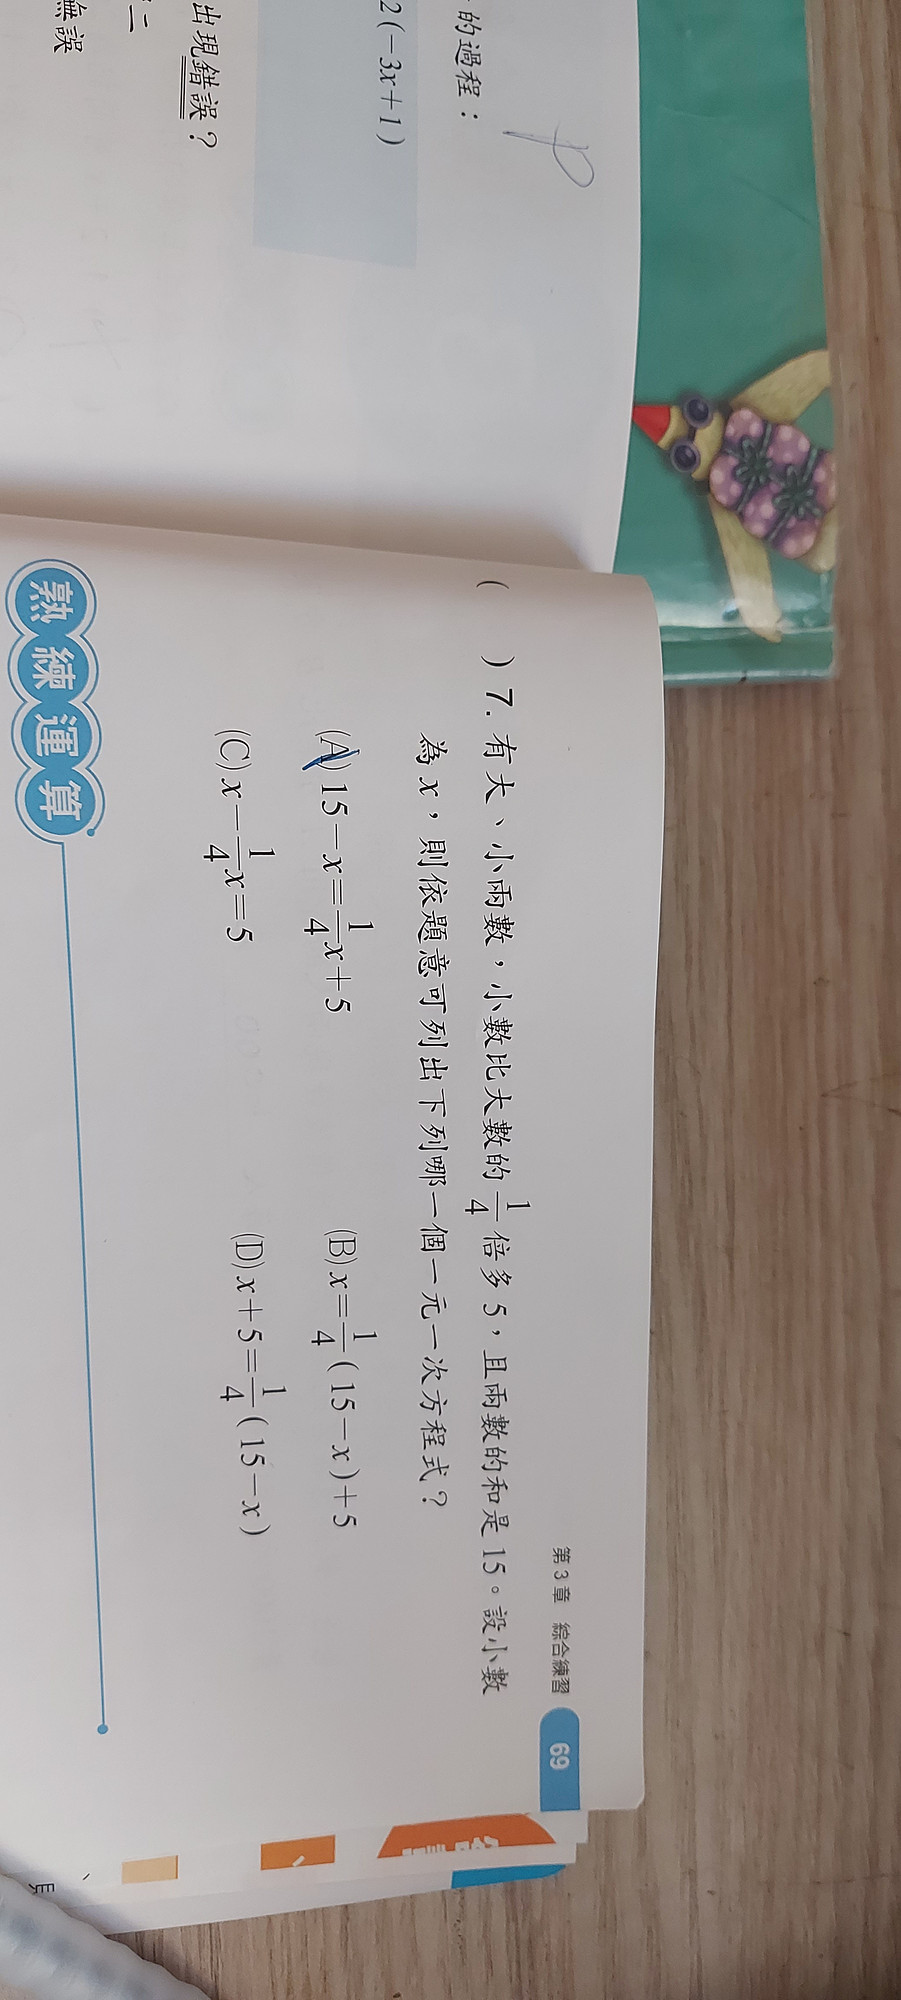 的過程：
2(−3x+1)
出現錯誤？
二
無誤
第3章 綜合練習 69
( ) 7. 有大、小兩數，小數比大數的 1/4 倍多 5，且兩數的和是 15。設小數
為 x，則依題意可列出下列哪一個一元一次方程式？
(A) 15−x=1/4x+5 (B) x=1/4(15−x)+5
(C) x−1/4x=5 (D) x+5=1/4(15−x)
熟練運算